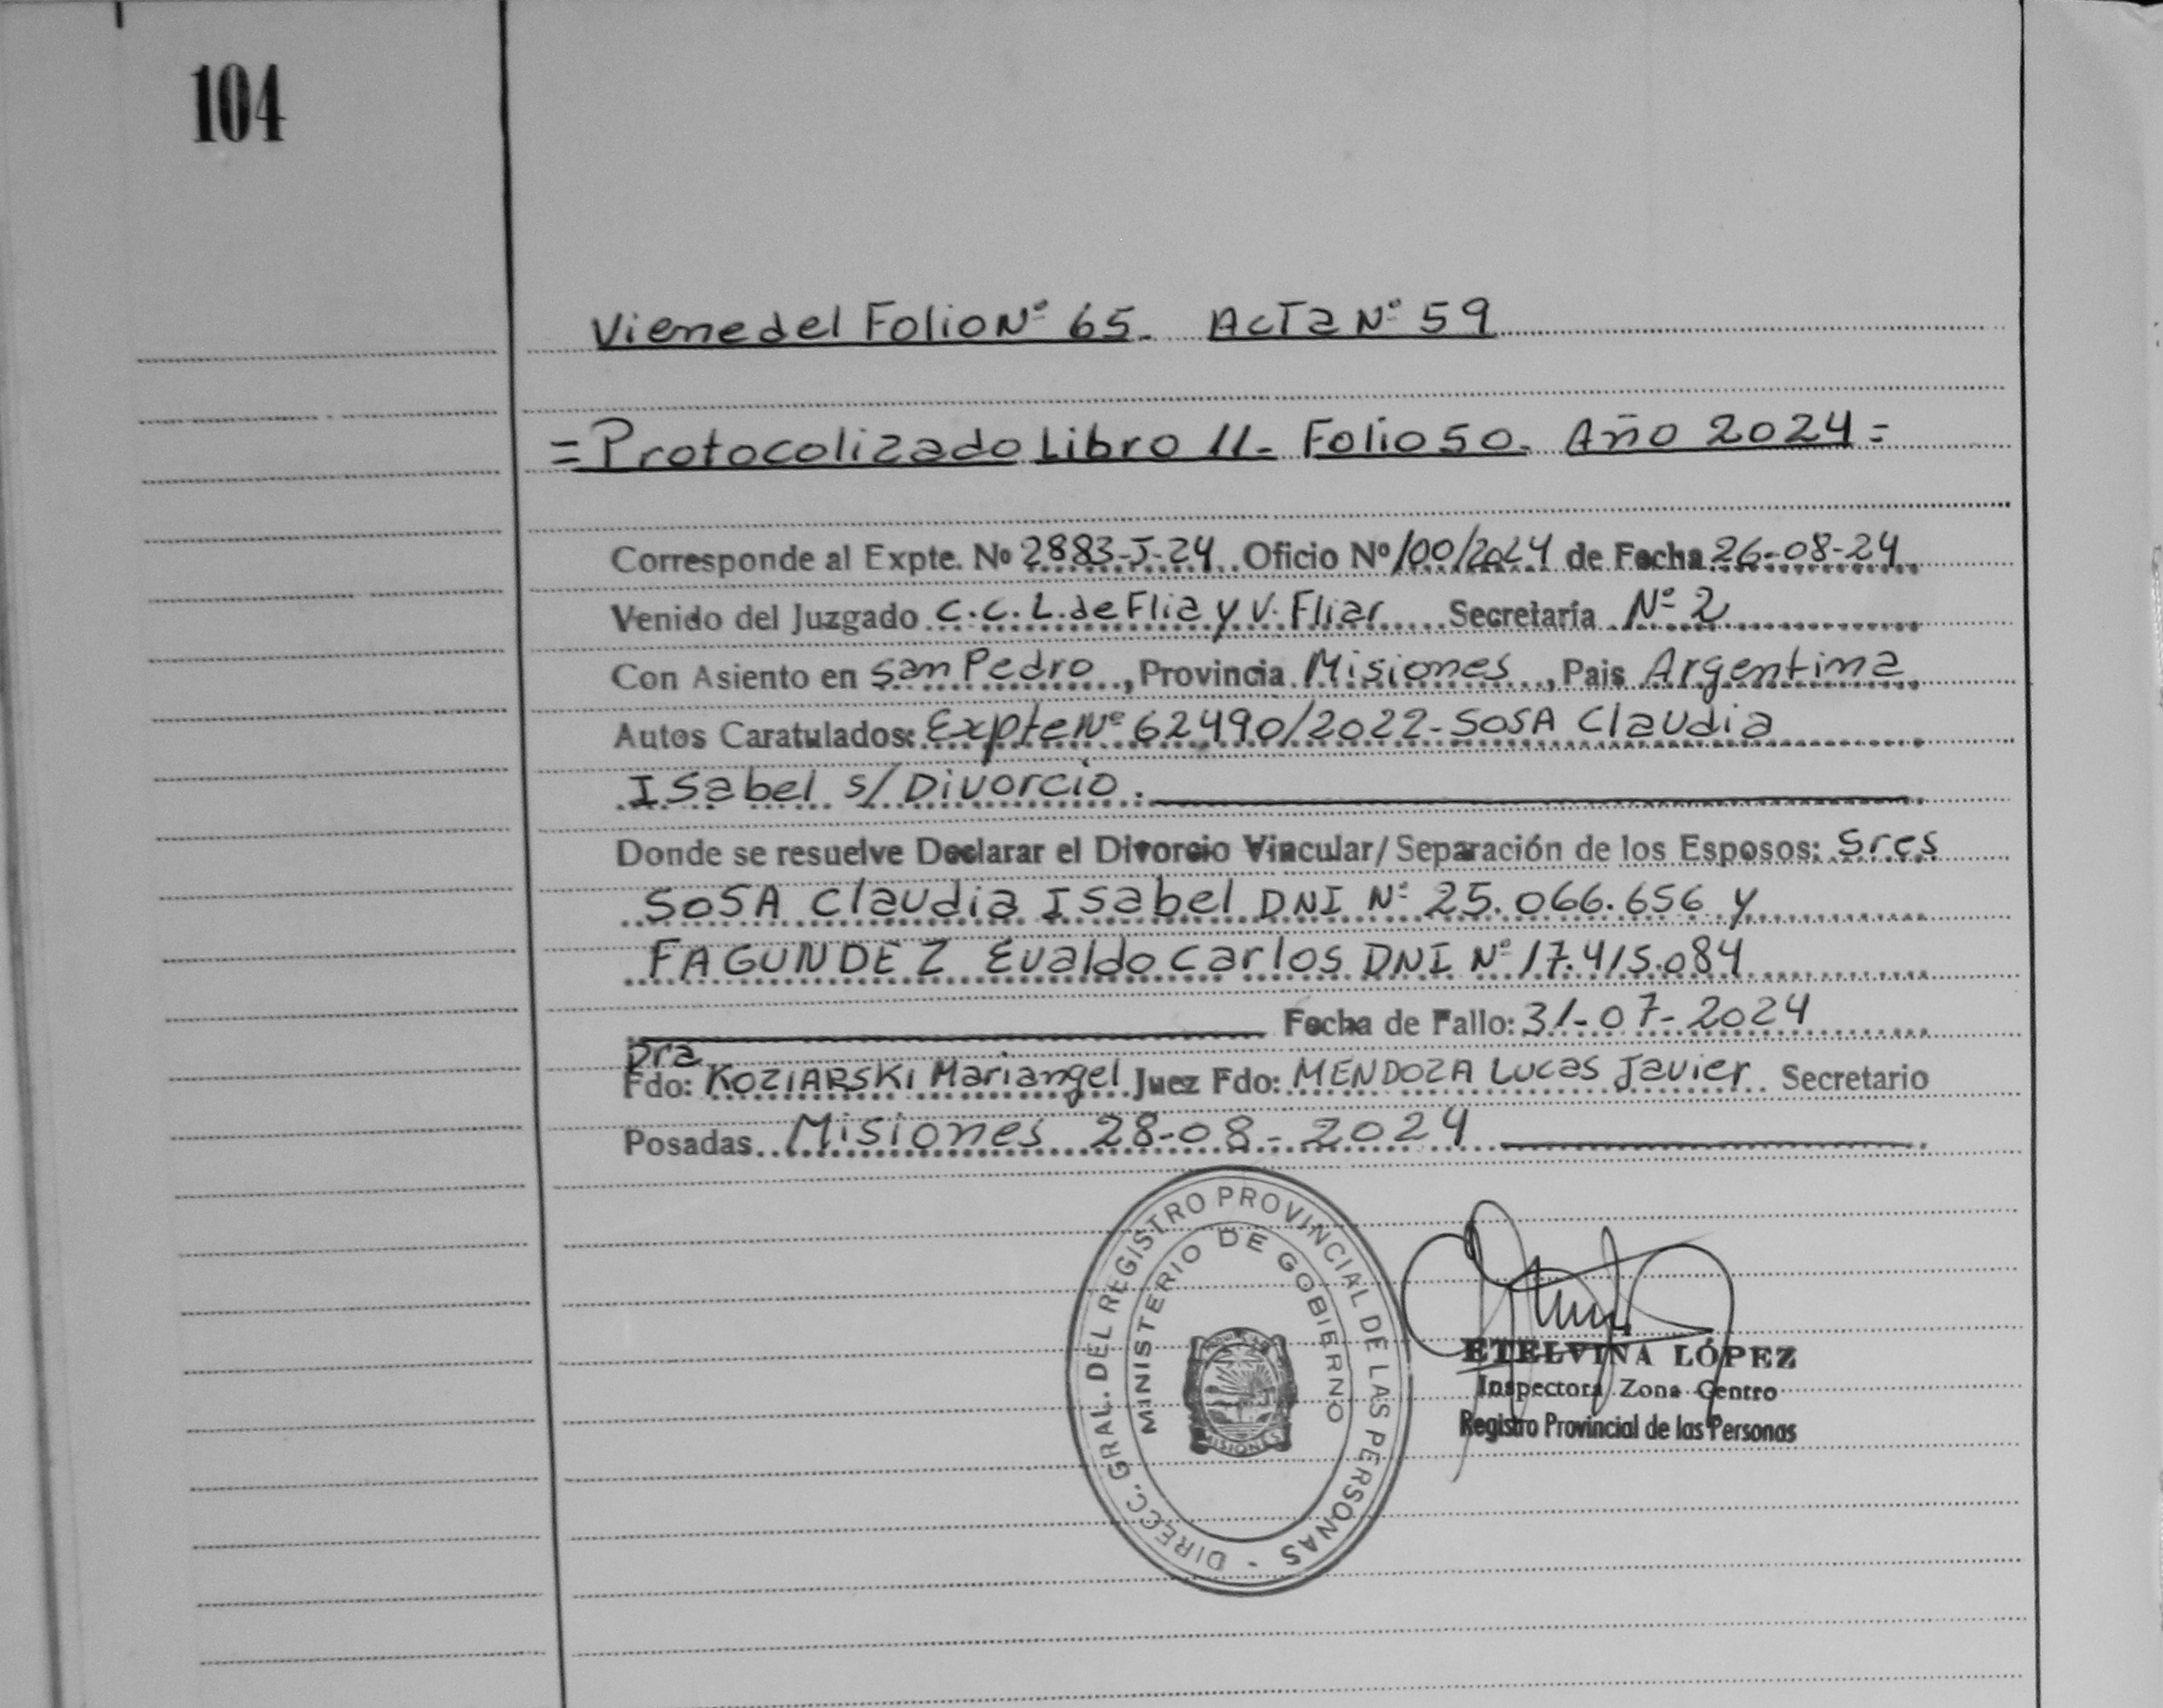 104
Viene del Folio Nº 65. Acta Nº 59
=Protocolizado Libro 11- Folio 50. Año 2024=
Corresponde al Expte. No 2883-J-24 Oficio Nº 100/2024 de Fecha 26-08-24
Venido del Juzgado C.C.L. de Flia y V. Fliar Secretaría Nº 2
Con Asiento en San Pedro, Provincia Misiones, Pais Argentina
Autos Caratulados: Expte Nº 62490/2022-SOSA Claudia
Isabel s/Divorcio.
Donde se resuelve Declarar el Divorcio Vincular/Separación de los Esposos: Sres
SOSA Claudia Isabel DNI Nº 25.066.656 y
FAGUNDEZ Evaldo Carlos DNI Nº 17.415.084
Fecha de Fallo: 31-07-2024
Dra
Fdo: KOZIARSKI Mariangel Juez Fdo: MENDOZA Lucas Javier Secretario
Posadas Misiones 28-08-2024
DIRECC. GRAL. DEL REGISTRO PROVINCIAL DE LAS PERSONAS -
MINISTERIO DE GOBIERNO
MISIONES
ETELVINA LÓPEZ
Inspectora Zona Centro
Registro Provincial de las Personas